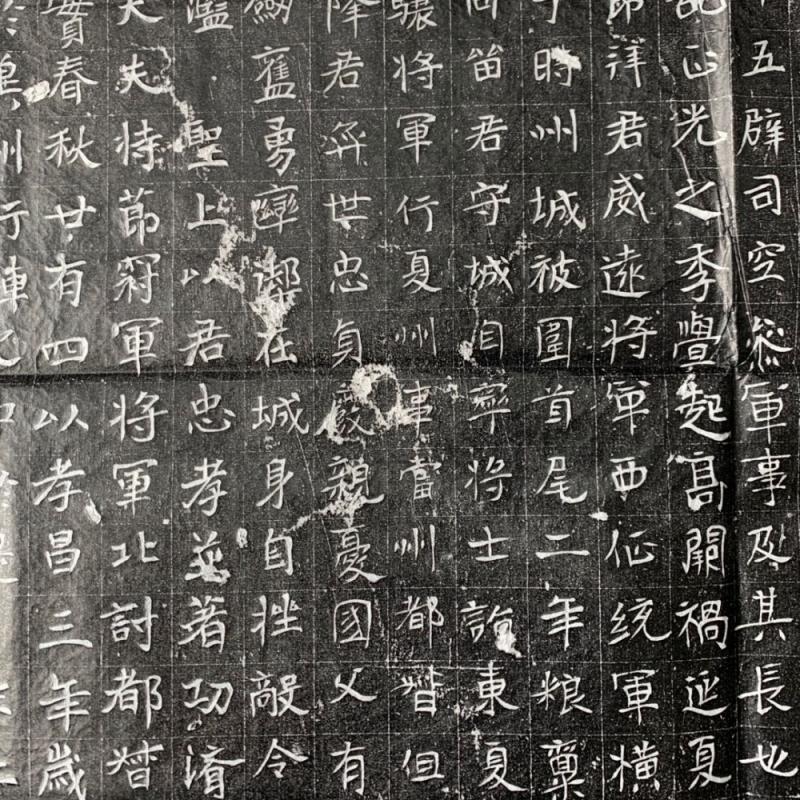 五辟司空參軍事及其長也
正光之季舋起高闕禍延夏
祥君威遠將軍西征統軍橫
于時州城被圍首尾二年粮稟
留君守城自率將士詣東夏
驤將軍行夏州事當州都督但
降君齊世忠貞嚴親憂國父有
舊勇禦在城身自挫敵令
濫 聖上以君忠孝並著功濟
夫持節冠軍將軍北討都督
春秋廿有四以孝昌三年歲
州行陣